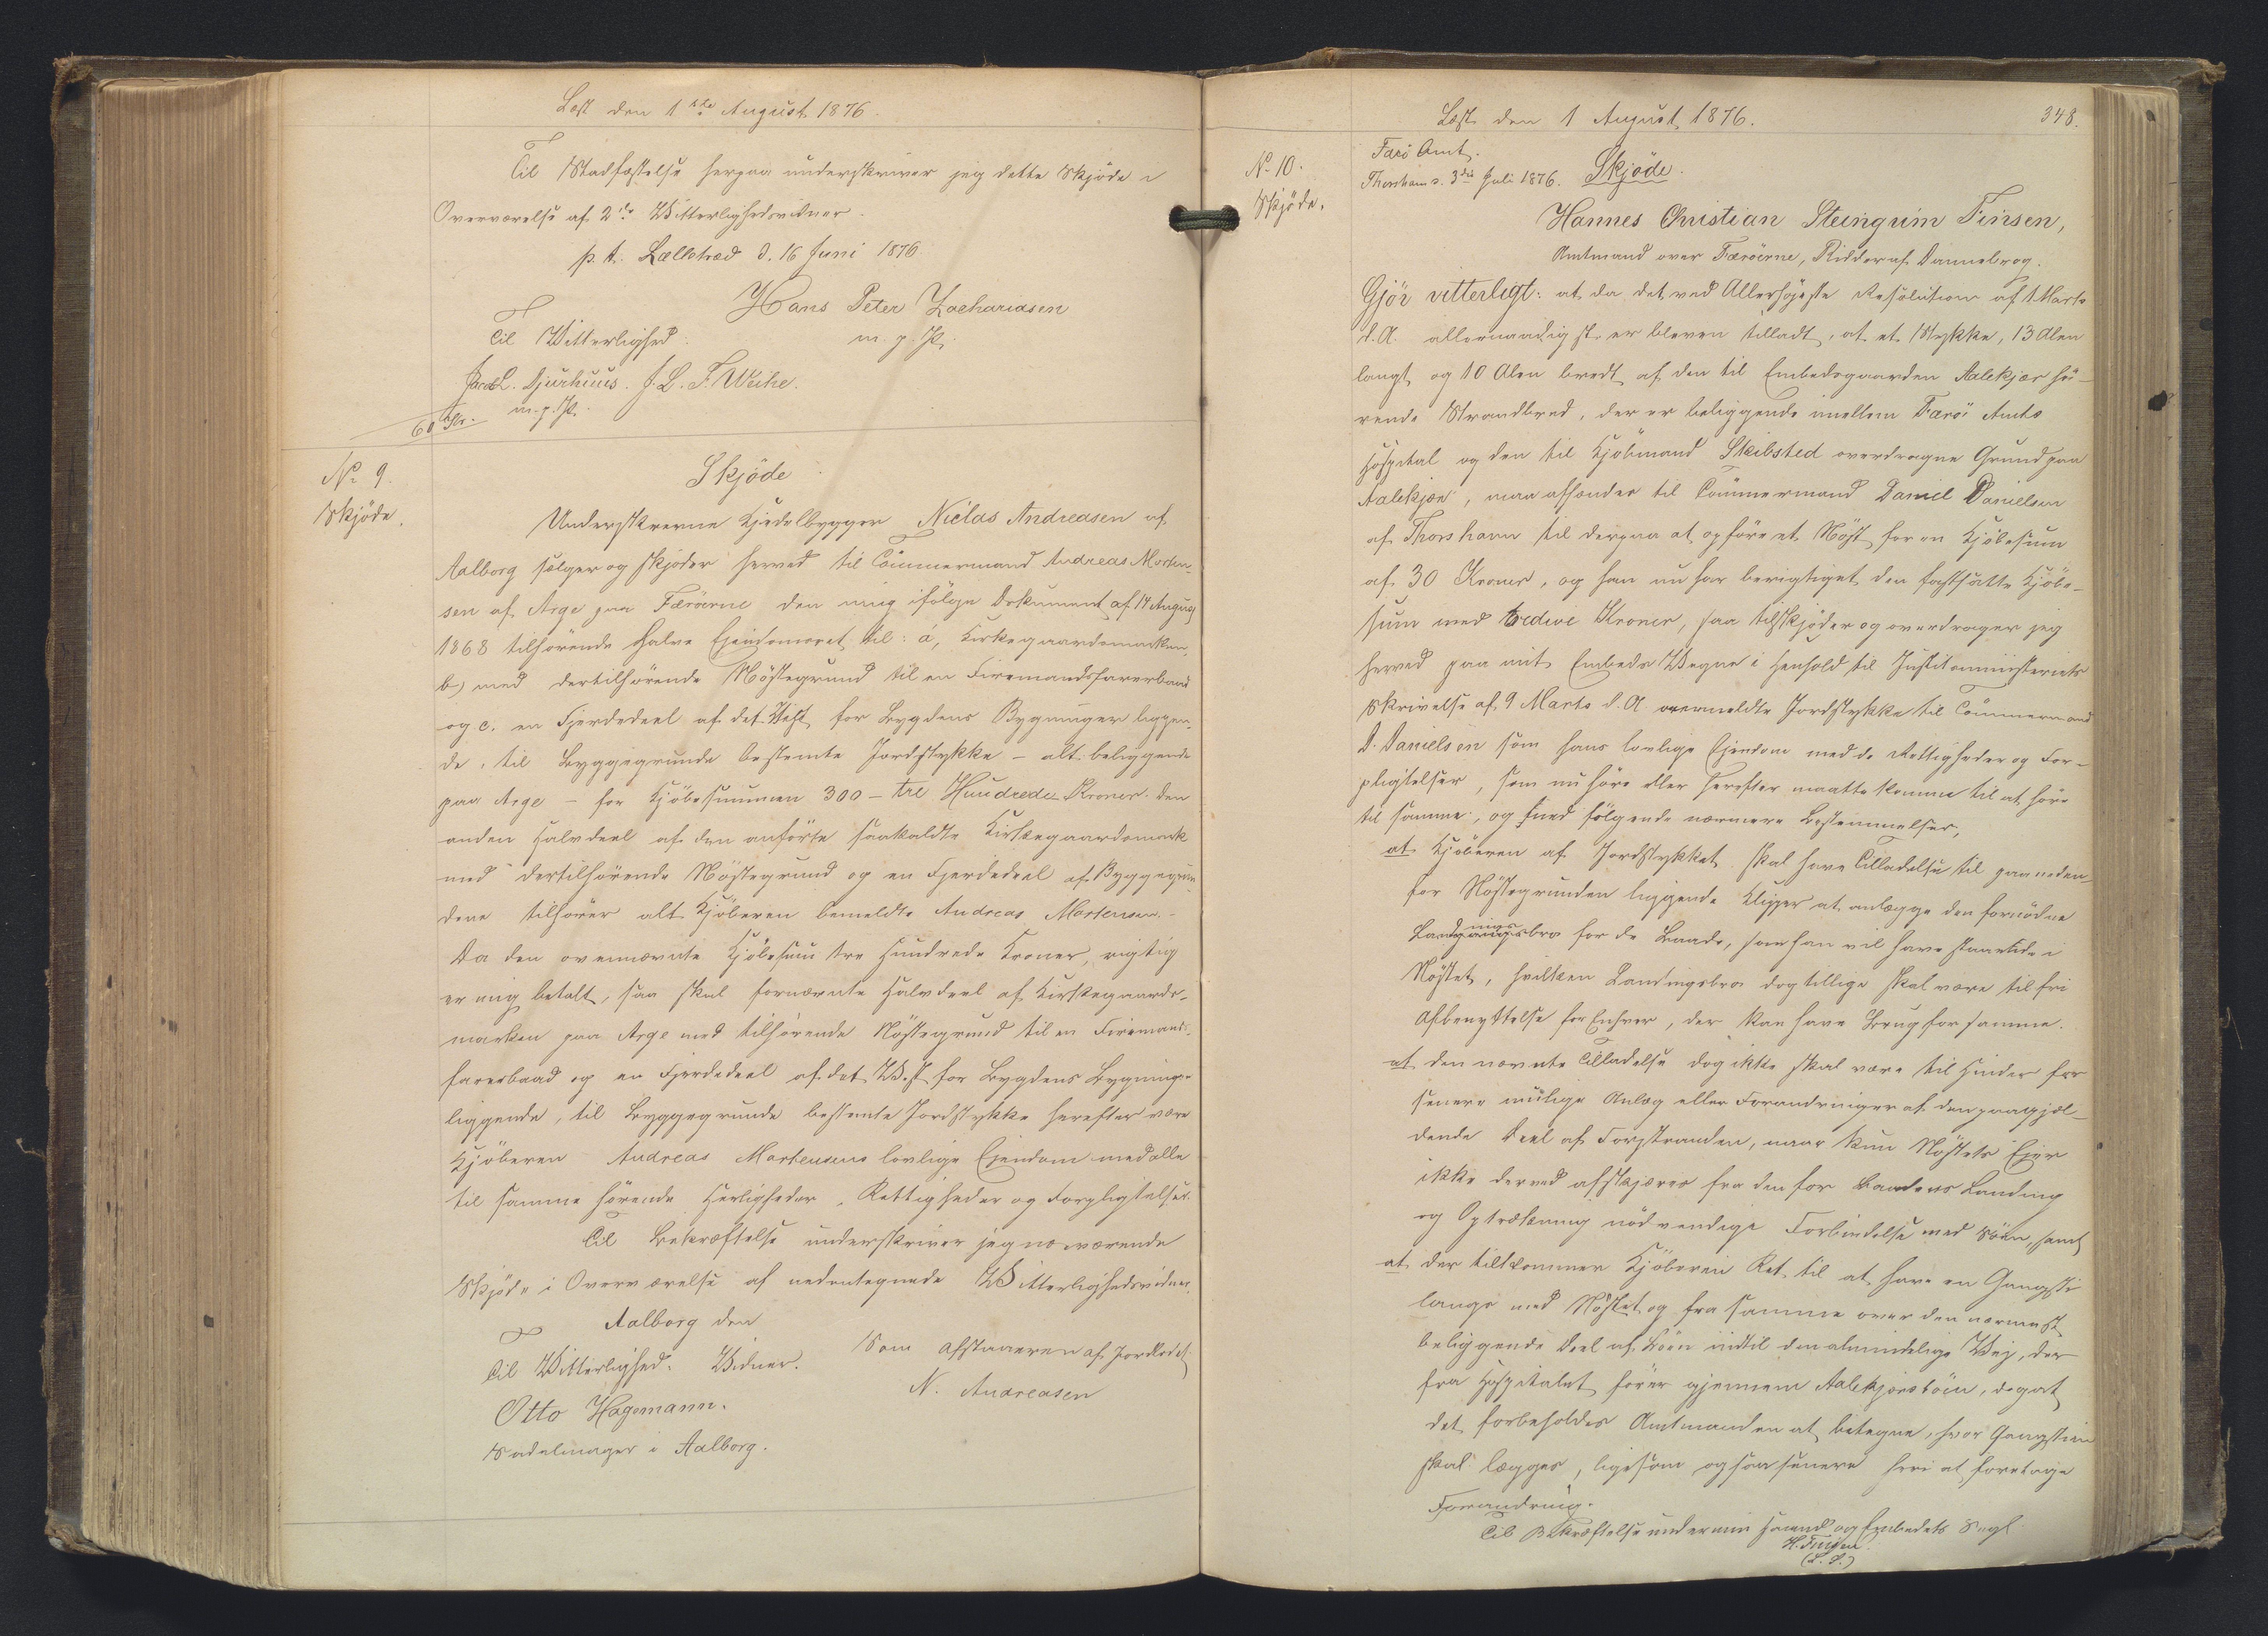 Læst den 1ste August 1876.
Til Stadfæstelse herpaa underskriver jeg dette Skjöde i
Overværelse af 2de Vitterlighedsvidner.
p. t. d. 16 Juni 1876
Hans Peter Zachariasen
Til Vitterlighed. m. p. P.
L. Djurhuus. J. L. F. Weihe.
m. p. P.
60
No 9. Skjöde.
Skjöde.
Underskrevne Niclas Andreasen af
Aalborg sælger og skjöder herved til Tömmermand Andreas Morten-
sen af Arge paa Færöerne den mig ifölge Dokument af 14 August
1868 tilhörende halve Ejendomsret til: a, Kirkegaardsmarken,
b) med dertilhörende Nöstegrund til en Firemandsfarerbaad
og c. en Fjerdedeel af det Vest for Bygdens Bygninger liggen-
de, til Byggegrunde bestemte Jordstykke - alt beliggende
paa Arge - for Kjöbesummen 300 - tre Hundrede Kroner. Den
anden Halvdeel af den anförte saakaldte Kirkegaardsmark
med dertilhörende Nöstegrund og en Fjerdedeel af Byggegrun-
dene tilhörer alt Kjöberen bemeldte Andreas Mortensen.-
Da den ovennævnte Kjöbesum tre Hundrede Kroner, rigtig
er mig betalt, saa skal fornævnte Halvdeel af Kirkegaards-
marken paa Arge med tilhörende Nöstegrund til en Firemands-
farerbaad og en Fjerdedeel af det V. f. for Bygdens Bygninger
liggende, til Byggegrunde bestemte Jordstykke herefter være
Kjöberen Andreas Mortensens lovlige Ejendom med alle
til samme hörende Herligheder, Rettigheder og Forpligtelser.
Til Bekræftelse underskriver jeg nærværende
Skjöde i Overværelse af nedentegnede Vitterlighedsvidner.
Aalborg den
Til Vitterlighed: Vidner. Som Afstaaeren af Jordlodet:
Otto Hagemann. N. Andreasen
Sadelmager i Aalborg.
Læst den 1 August 1876. 348.
No 10. Skjöde.
Færö Amt.
Thorshavn d. 3die Juli 1876. Skjöde.
Hannes Christian Steingrim Finsen,
Amtmand over Færöerne, Ridder af Dannebrog.
Gjör vitterligt: at da det ved Allerhöjeste Resolution af 1 Marts
d. A. allernaadigst er bleven tilladt, at et Stykke, 13 Alen
langt og 10 Alen bredt af den til Embedsgaarden Aalekjær hö-
rende Strandbred, der er beliggende imellem Færö Amts
Hospital og den til Kjöbmand Skibsted overdragne Grund paa
Aalekjær, maa afhændes til Tömmermand Daniel Danielsen
af Thorshavn til derpaa at opföre et Nöst for en Kjöbesum
af 30 Kroner, og han nu har berigtiget den fastsatte Kjöbe-
sum med tredive Kroner, saa tilskjöder og overdrager jeg
herved paa mit Embeds Vegne i Henhold til Justitsministeriets
Skrivelse af 9 Marts d. A. ovenmeldte Jordstykke til Tömmermand
D. Danielsen som hans lovlige Ejendom med de Rettigheder og For-
pligtelser, som nu höre eller herefter maatte komme til at höre
til samme, og med fölgende nærmere Bestemmelser,
at Kjöberen af Jordstykket skal have Tilladelse til paa neden-
for Nöstegrunden liggende Klipper at anlægge den fornödne
Landingsbro for de Baade, som han vil have staaende i
Nöstet, hvilken Landingsbro dog tillige skal være til fri
Afbenyttelse for Enhver, der kan have Brug for samme.
at den nævnte Tilladelse dog ikke skal være til Hinder for
senere mulige Anlæg eller Forandringer af den paagjæl-
dende Deel af Forstranden, naar kun Nöstets Ejer
ikke derved afskjæres fra den for Baadens Landing
og Optrækning nödvendige Forbindelse med Söen, samt
at der tilkommer Kjöberen Ret til at have en Gangsti
langs med Nöstet og fra samme over den nærmest
beliggende Deel af Böen indtil den almindelige Vej, der
fra Hospitalet förer gjennem Aalekjærsböen, dog at
det forbeholdes Amtmanden at betegne, hvor Gangstien
skal lægges, ligesom ogsaa senere heri at foretage
Forandring.
Til Bekræftelse under min Haand og Embedets Segl
H. Finsen.
(L. S.)